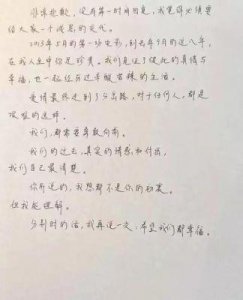 非常抱歉，没有第一时间回复，我觉得必须要
给大家一个
2013年5月的第一场电影，到去年9月的这八年，
在我人生中弥足珍贵。我们见证了彼此的真情与
幸福，也一起经历过辛酸苦辣的生活。
爱情最终走到了分岔路，对于任何人，都是
艰难的选择。
我们，都需要勇敢向前。
我们的过去，真实的情感和付出，
我们自己最清楚。
你所说的，我想都不是你的初衷。
但我能理解。
分别时的话，我再说一次：希望我们都幸福。